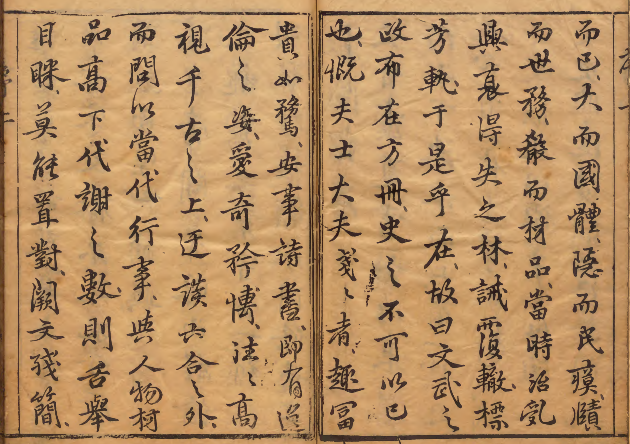 而已大而國體隱而民瘼賾
而世務殽而材品當時治乱
興衰得失之林誡覆轍標
芳軌于是乎在故曰文武之
政布在方冊史之不可以已
也慨夫士大夫戔〻者趣冨
貴如鶩安事詩書即有逸
倫之姿愛奇矜博法〻高
視千古之上迂談六合之外
而問以當代行事與人物材
品高下代謝之數則舌舉
目眯莫能置對闕文殘簡